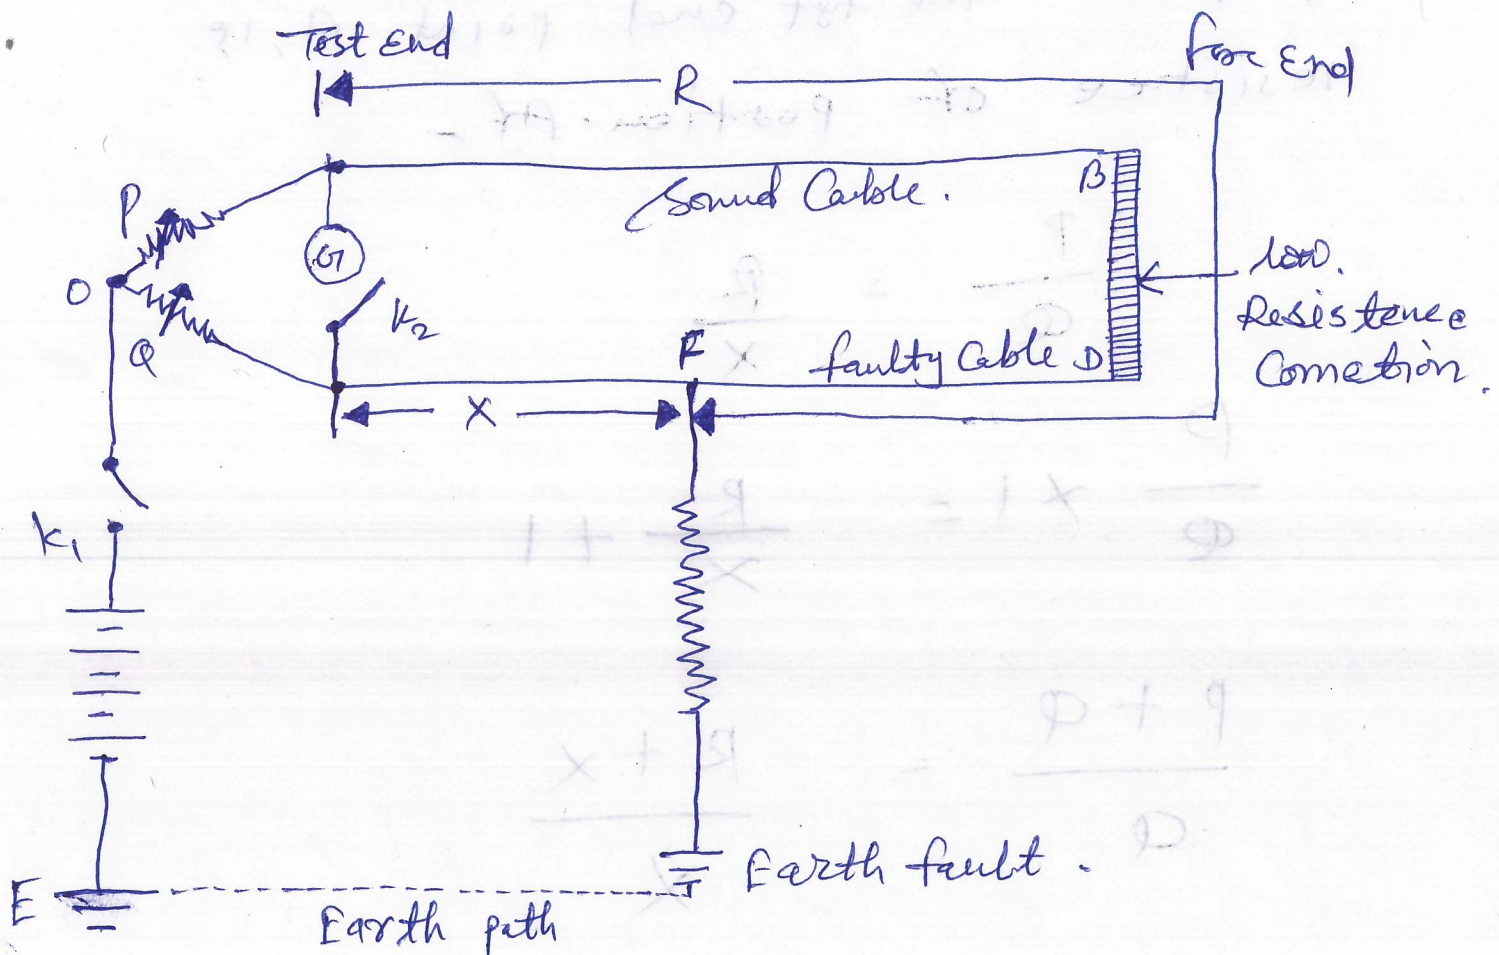 Test End
Far End
R
P
Sound Cable.
B
G
O
low.
Resistence
Connetion.
K2
Q
F
faulty Cable D
X
K1
Earth fault.
E
Earth path